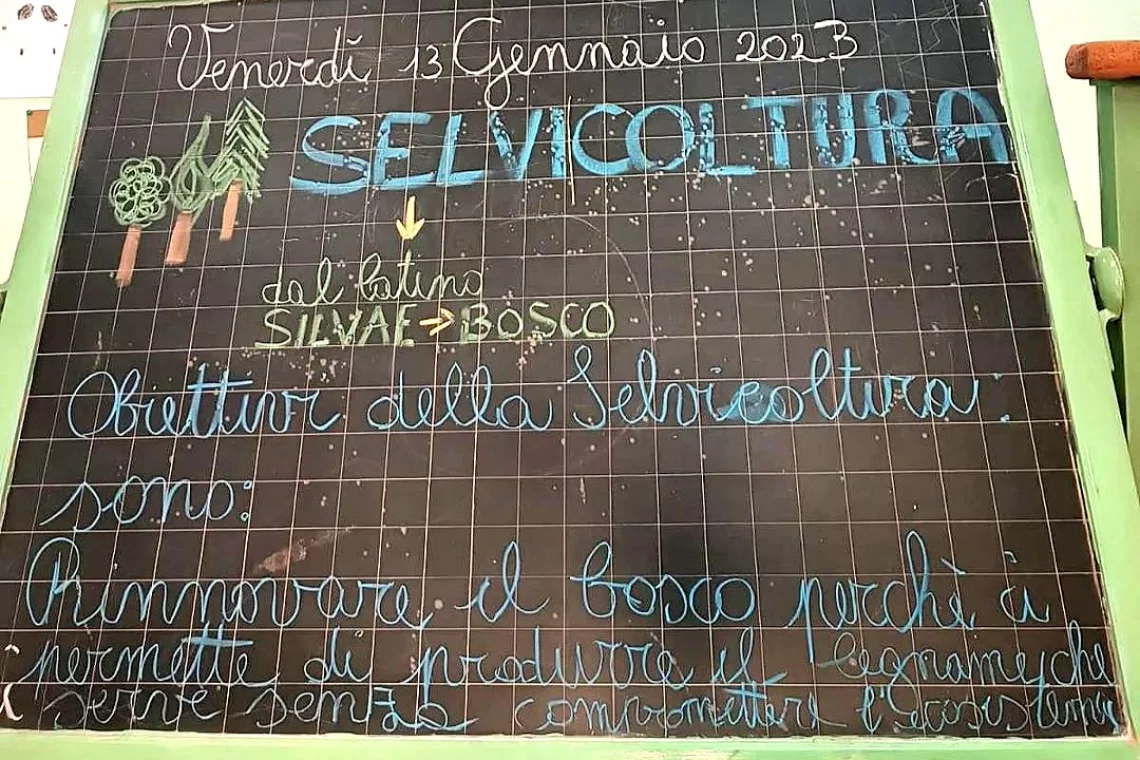 Venerdì 13 Gennaio 2023
SELVICOLTURA
dal latino
SILVAE → BOSCO
Obiettivi della Selvicoltura
sono:
Rinnovare il bosco perchè ci
permette di produrre il legname che
ci serve senza compromettere l'Ecosistema